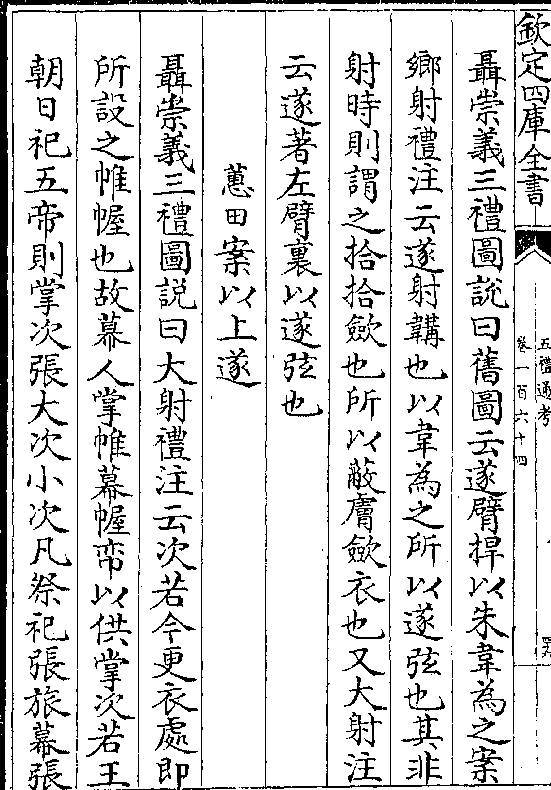 欽定四庫全書
五禮通考
卷一百六十四
聶崇義三禮圖說曰舊圖云遂臂捍以朱韋為之案
鄉射禮注云遂射韝也以韋為之所以遂弦也其非
射時則謂之拾拾斂也所以蔽膚斂衣也又大射注
云遂著左臂裏以遂弦也
蕙田案以上遂
聶崇義三禮圖說曰大射禮注云次若今更衣處即
所設之帷幄也故幕人掌帷幕幄帟以供掌次若王
朝日祀五帝則掌次張大次小次凡祭祀張旅幕張